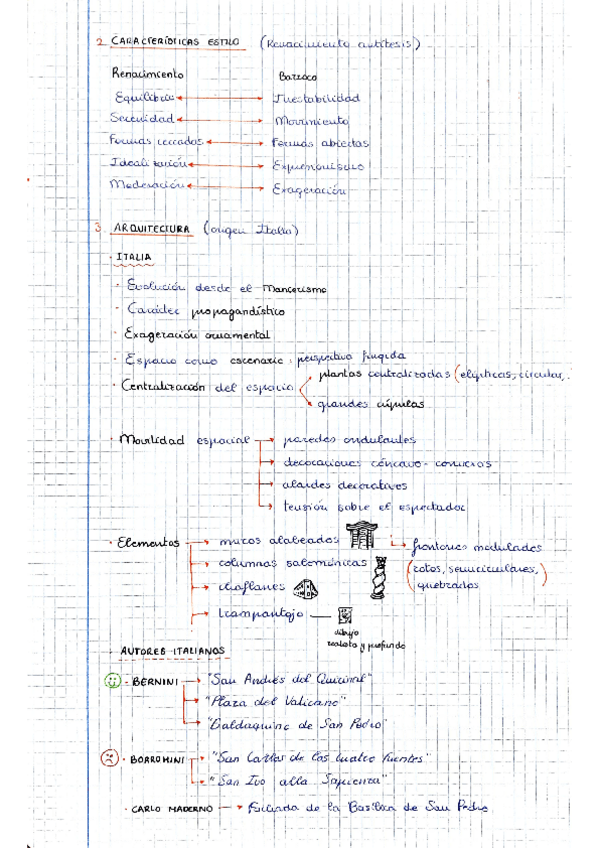 2. CARACTERÍSTICAS ESTILO (Renacimiento antítesis)
Renacimiento Barroco
Equilibrio Inestabilidad
Serenidad Movimiento
Formas cerradas Formas abiertas
Idealización Expresionismo
Moderación Exageración
3. ARQUITECTURA (origen Italia)
· ITALIA
· Evolución desde el Manierismo
· Carácter propagandístico
· Exageración ornamental
· Espacio como escenario: perspectiva fingida
· Centralización del espacio plantas centralizadas (elípticas, circular,..
grandes cúpulas
· Movilidad espacial paredes ondulantes
decoraciones cóncavo-convexos
alardes decorativos
tensión sobre el espectador
· Elementos muros alabeados frontones modulados
columnas salomónicas (rotos, semicirculares,
chaflanes quebrados)
trampantojo
dibujo
realista y profundo
· AUTORES ITALIANOS
· BERNINI "San Andrés del Quirinal"
"Plaza del Vaticano"
"Baldaquino de San Pedro"
· BORROMINI "San Carlos de las cuatro fuentes"
"San Ivo alla Sapienza"
· CARLO MADERNO Fachada de la Basílica de San Pedro